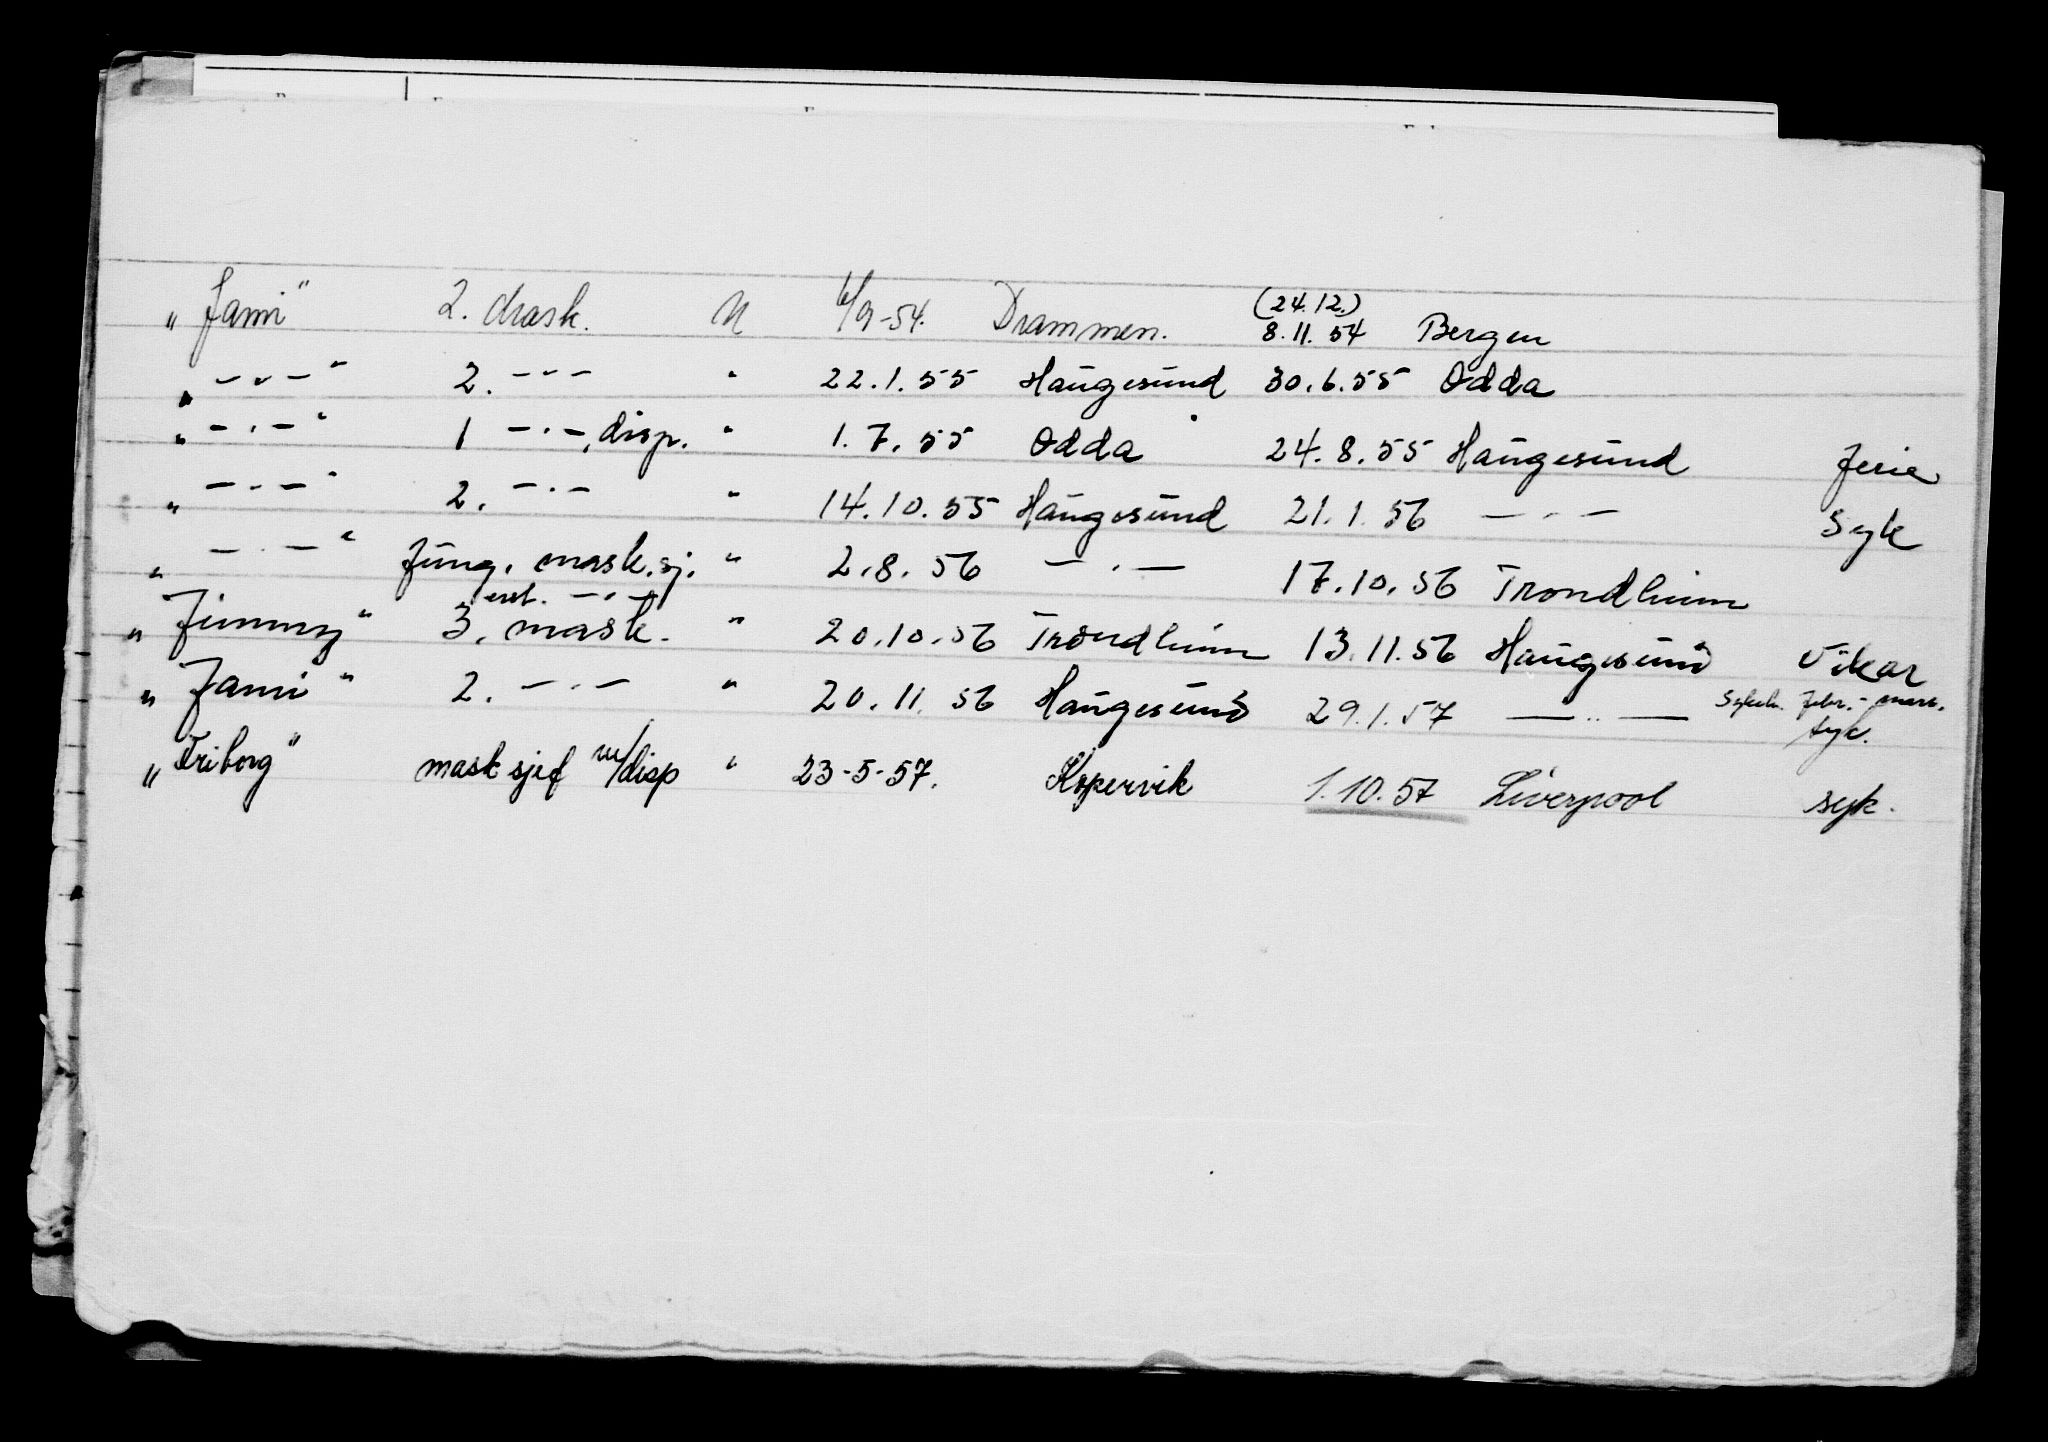 „Jami" 2. Mask. N 6/9-54. Drammen. (24.12.) 8.11.54 Bergen
„ - „ - " 2. - - - " 22.1.55 Haugesund 30.6.55 Odda
„ - . - " 1 - . -, disp. " 1.7.55 Odda 24.8.55 Haugesund Ferie
„ - . - " 2. - . - " 14.10.55 Haugesund 21.1.56 - . - Syk
„ - . - " Fung. mask.sj. " 2.8.56 - . - 17.10.56 Trondheim
„Jimmy" 3. mask. " 20.10.56 Trondheim 13.11.56 Haugesund Vikar
„Jami" 2. - . - " 20.11.56 Haugesund 29.1.57 - .. - Febr. - mars. syk.
„Friborg" mask sjef m/disp " 23-5-57. Kopervik 1.10.57 Liverpool syk.